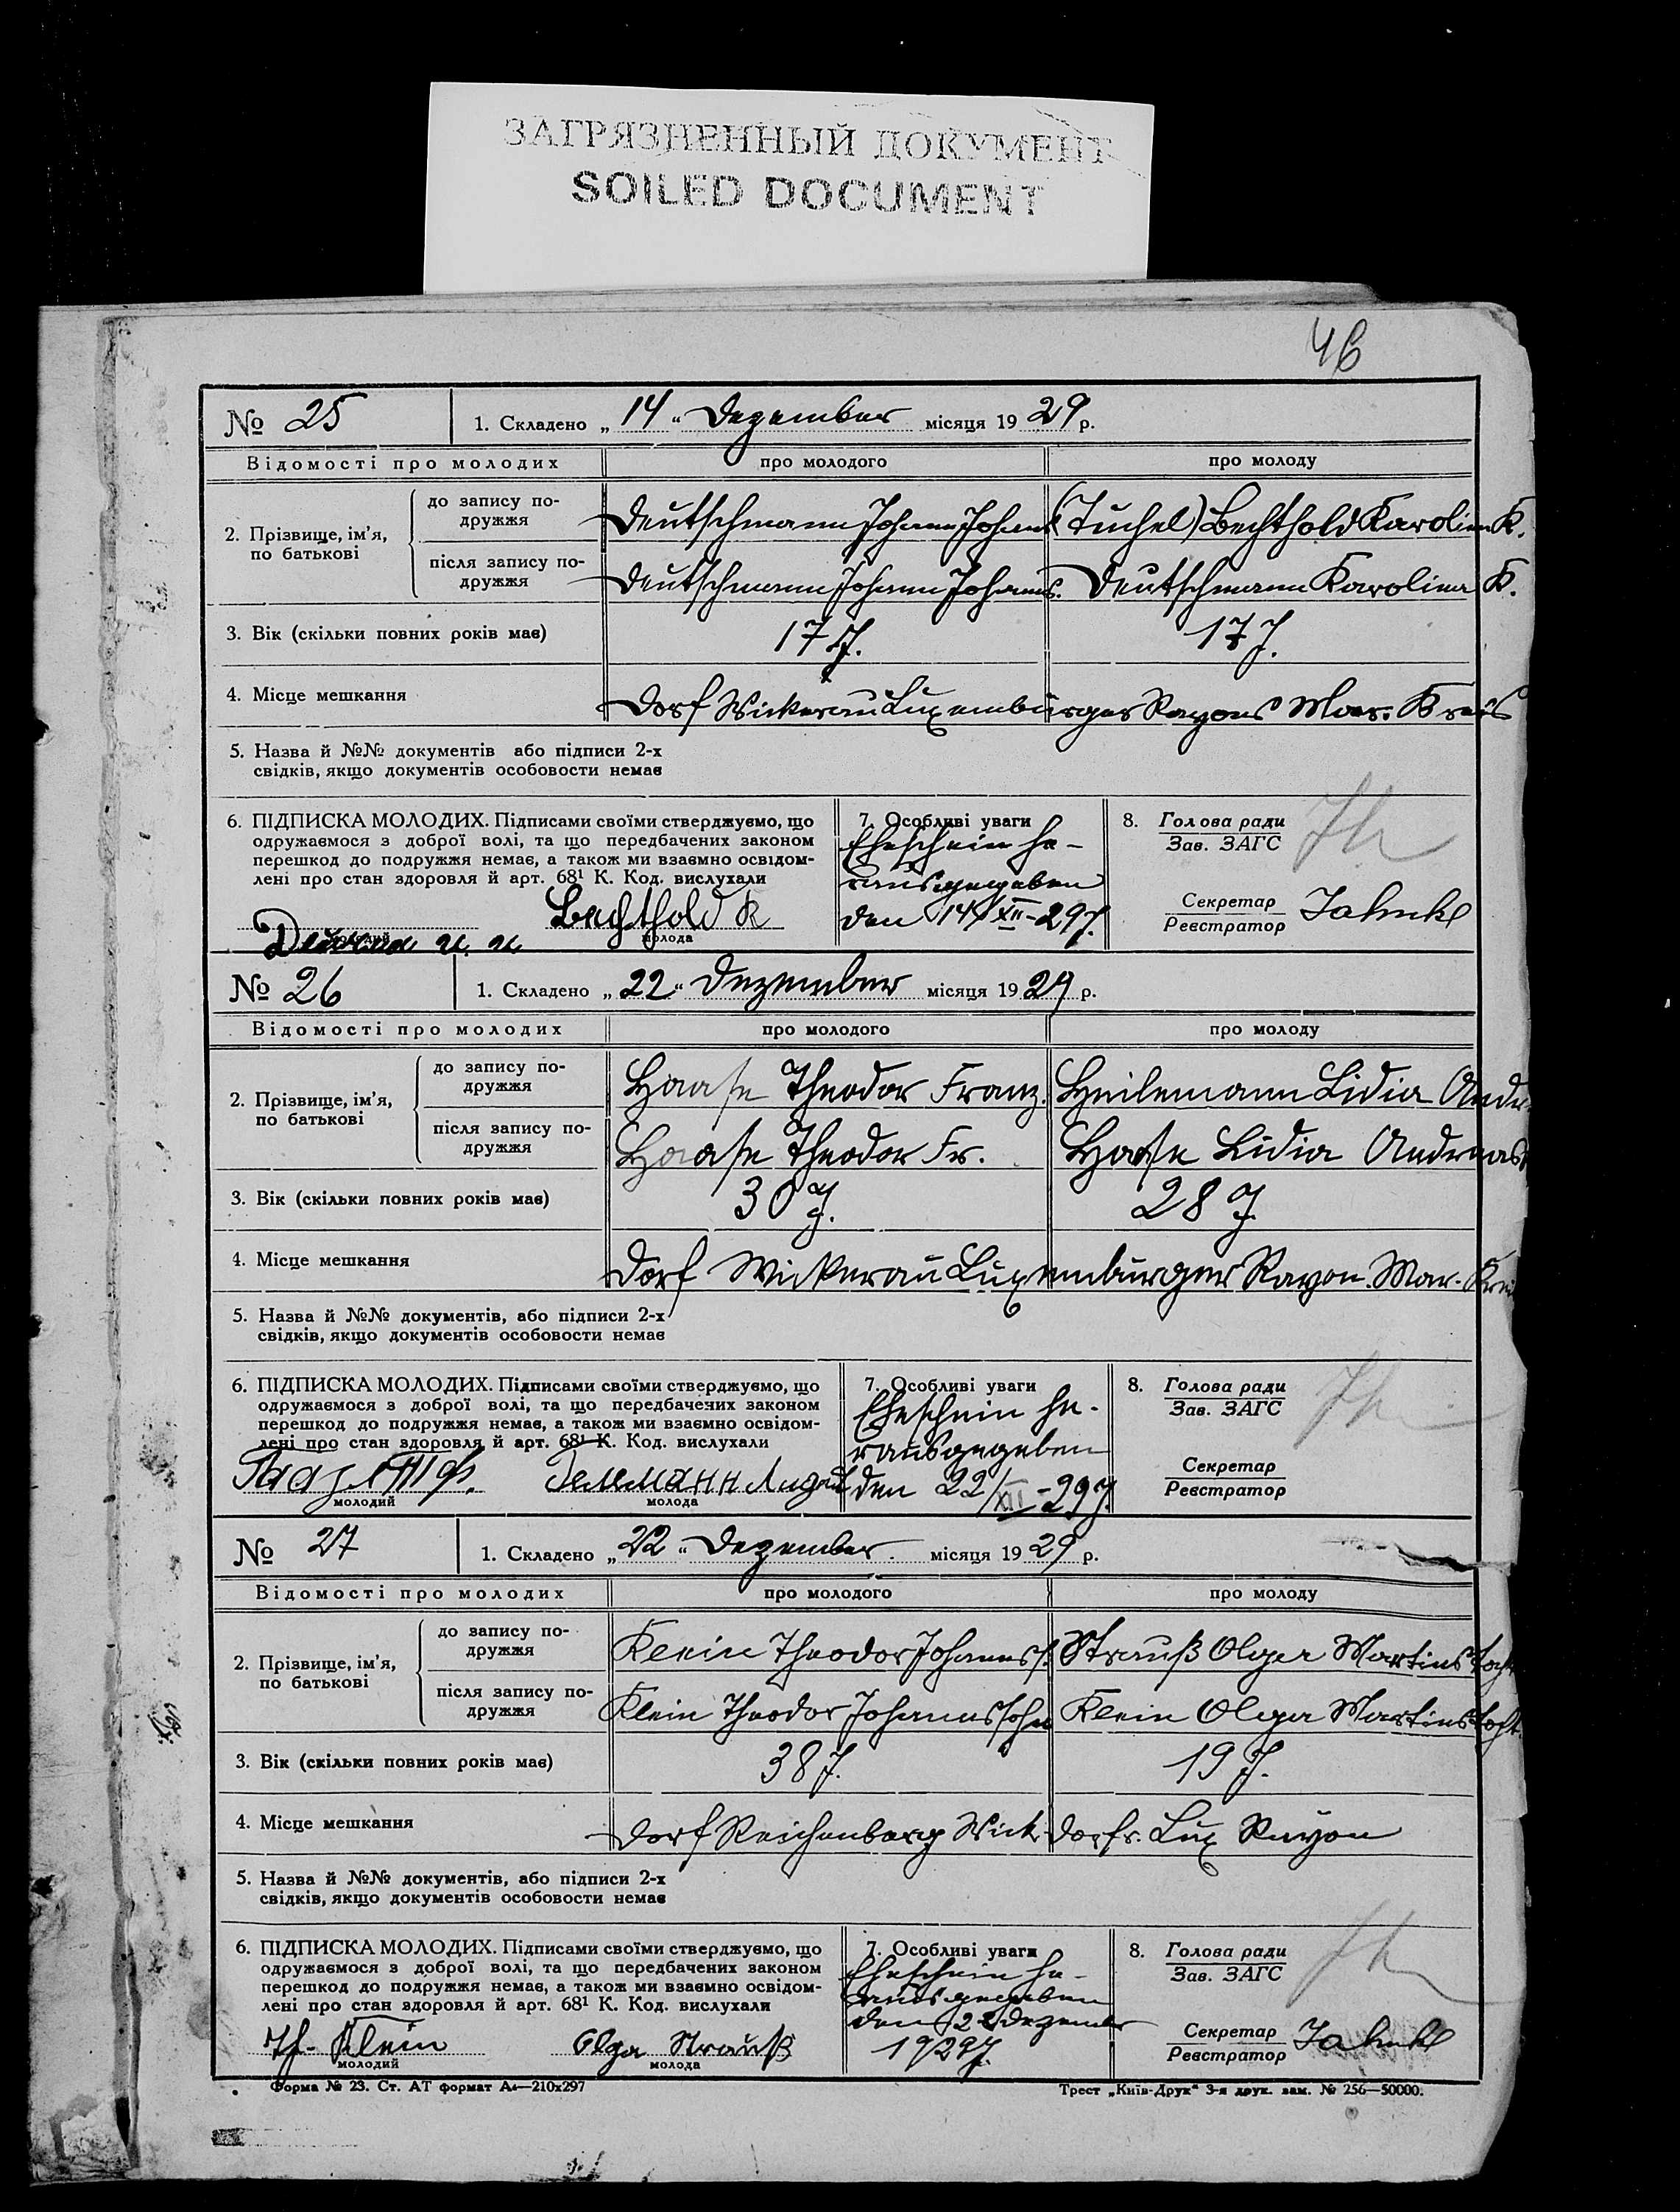 ЗАГРЯЗНЕННЫЙ ДОКУМЕНТ
SOILED DOCUMENT
46
№ 25
1. Складено „14“ Dezember місяця 1929 р.
Відомості про молодих
про молодого
про молоду
2. Прізвище, ім'я, по батькові
до запису подружжя
Deutschmann Johann Johans
(Tuchel) Bechthold Karolina K.
після запису подружжя
Deutschmann Johann Johans.
Deutschmann Karolina K.
3. Вік (скільки повних років має)
17 J.
17 J.
4. Місце мешкання
Dorf Wickerau Luxemburger Rayons Mar. Kreis
5. Назва й №№ документів або підписи 2-х
свідків, якщо документів особовости немає
6. ПІДПИСКА МОЛОДИХ. Підписами своїми стверджуємо, що
одружаємося з доброї волі, та що передбачених законом
перешкод до подружжя немає, а також ми взаємно освідом-
лені про стан здоровля й арт. 68¹ К. Код. вислухали
Bechthold K
молода
7. Особливі уваги
Eheschein he-
rausgegeben
den 14/XII-29 J.
8. Голова ради
Зав. ЗАГС
Секретар
Реєстратор
Jahnke
№ 26
1. Складено „22“ Dezember місяця 1929 р.
Відомості про молодих
про молодого
про молоду
2. Прізвище, ім'я, по батькові
до запису подружжя
Haase Theodor Franz.
Heilemann Lidia Andr
після запису подружжя
Haase Theodor Fr.
Haase Lidia Andreas
3. Вік (скільки повних років має)
30 J.
28 J.
4. Місце мешкання
Dorf Wickerau Luxemburger Rayon. Mar. Krei
5. Назва й №№ документів, або підписи 2-х
свідків, якщо документів особовости немає
6. ПІДПИСКА МОЛОДИХ. Підписами своїми стверджуємо, що
одружаємося з доброї волі, та що передбачених законом
перешкод до подружжя немає, а також ми взаємно освідом-
лені про стан здоровля й арт. 68¹ К. Код. вислухали
молодий
молода
7. Особливі уваги
Eheschein he-
rausgegeben
den 22/XII-29 J.
8. Голова ради
Зав. ЗАГС
Секретар
Реєстратор
№ 27
1. Складено „22“ Dezember. місяця 1929 р.
Відомості про молодих
про молодого
про молоду
2. Прізвище, ім'я, по батькові
до запису подружжя
Klein Theodor Johanness.
Strauß Olga Martinstocht
після запису подружжя
Klein Theodor Johannessohn
Klein Olga Martinstocht.
3. Вік (скільки повних років має)
38 J.
19 J.
4. Місце мешкання
Dorf Reichenberg Wick. Dorfr. Lux Rayon
5. Назва й №№ документів, або підписи 2-х
свідків, якщо документів особовости немає
6. ПІДПИСКА МОЛОДИХ. Підписами своїми стверджуємо, що
одружаємося з доброї волі, та що передбачених законом
перешкод до подружжя немає, а також ми взаємно освідом-
лені про стан здоровля й арт. 68¹ К. Код. вислухали
Th. Klein
молодий
Olga Strauß
молода
7. Особливі уваги
Eheschein he-
rausgegeben
den 22 Dezember
1929 J.
8. Голова ради
Зав. ЗАГС
Секретар
Реєстратор
Jahnke
Форма № 23. Ст. АТ формат А₄—210x297
Трест „Київ-Друк“ 3-я друк. зам. № 256—50000.